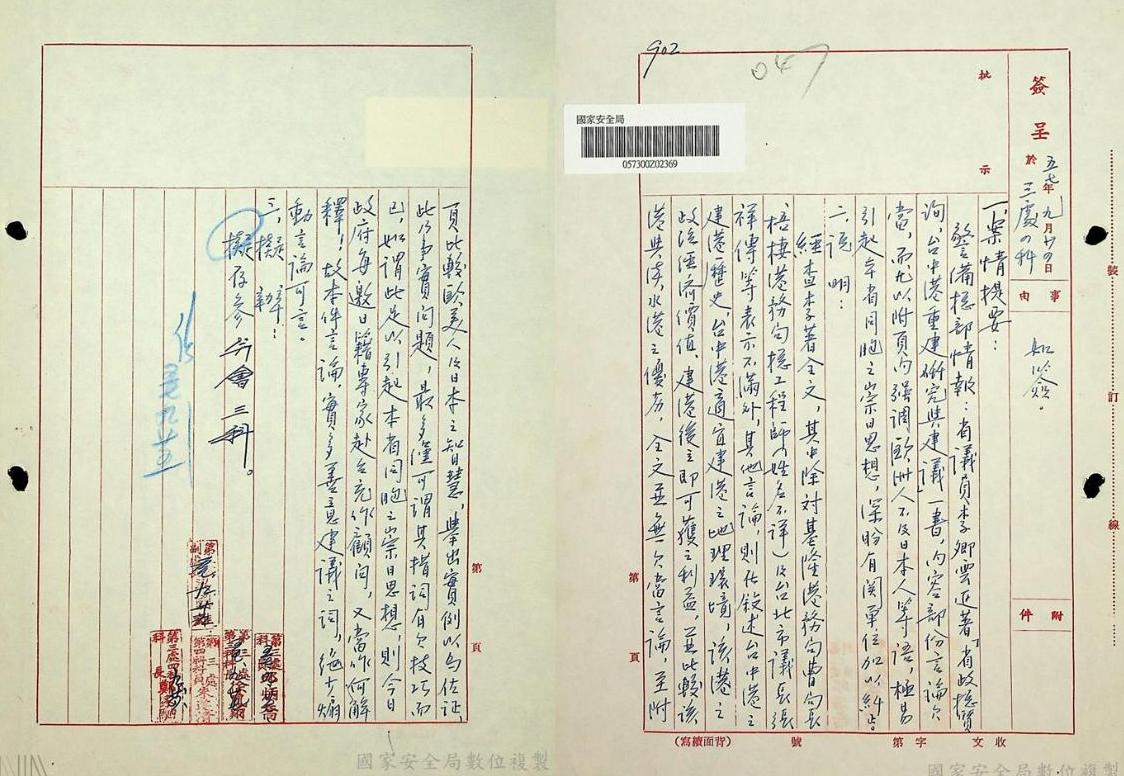 902
047
國家安全局
057300202369
簽呈
於
五七年九月廿四日
三處四科
批示
事由
如簽。
附件
一、案情提要：
警備總部情報：省議員李卿雲近著「省政總質
詢，台中港重建研究與建議」一書，內容部份言論欠
當，而尤以附頁內強調歐洲人不及日本人等語，極易
引起本省同胞之崇日思想，深盼有關單位加以糾正。
二、說明：
經查李著全文，其中除對基隆港務局曹局長
梧棲港務局總工程師（姓名不詳）及台北市議長張
祥傳等表示不滿外，其他言論，則在敘述台中港之
建港歷史，台中港適宜建港之地理環境，該港之
政治經濟價值，建港後立即可獲之利益，並比較該
港與淡水港之優劣，全文並無欠當言論，至附
裝
訂
線
第
頁
收文
字第
號
(背面續寫)
頁比較歐美人及日本之智慧，舉出實例以為佐證，
此乃事實問題，最多僅可謂其措詞有欠技巧而
已，如謂此足以引起本省同胞之崇日思想，則今日
政府每邀日籍專家赴台充作顧問，又當作何解
釋！故本件言論，實多善意建議之詞，絕少煽
動言論可言。
三、擬辦：
擬存參弁會三科。
第
頁
國家安全局數位複製
國家安全局數位複製